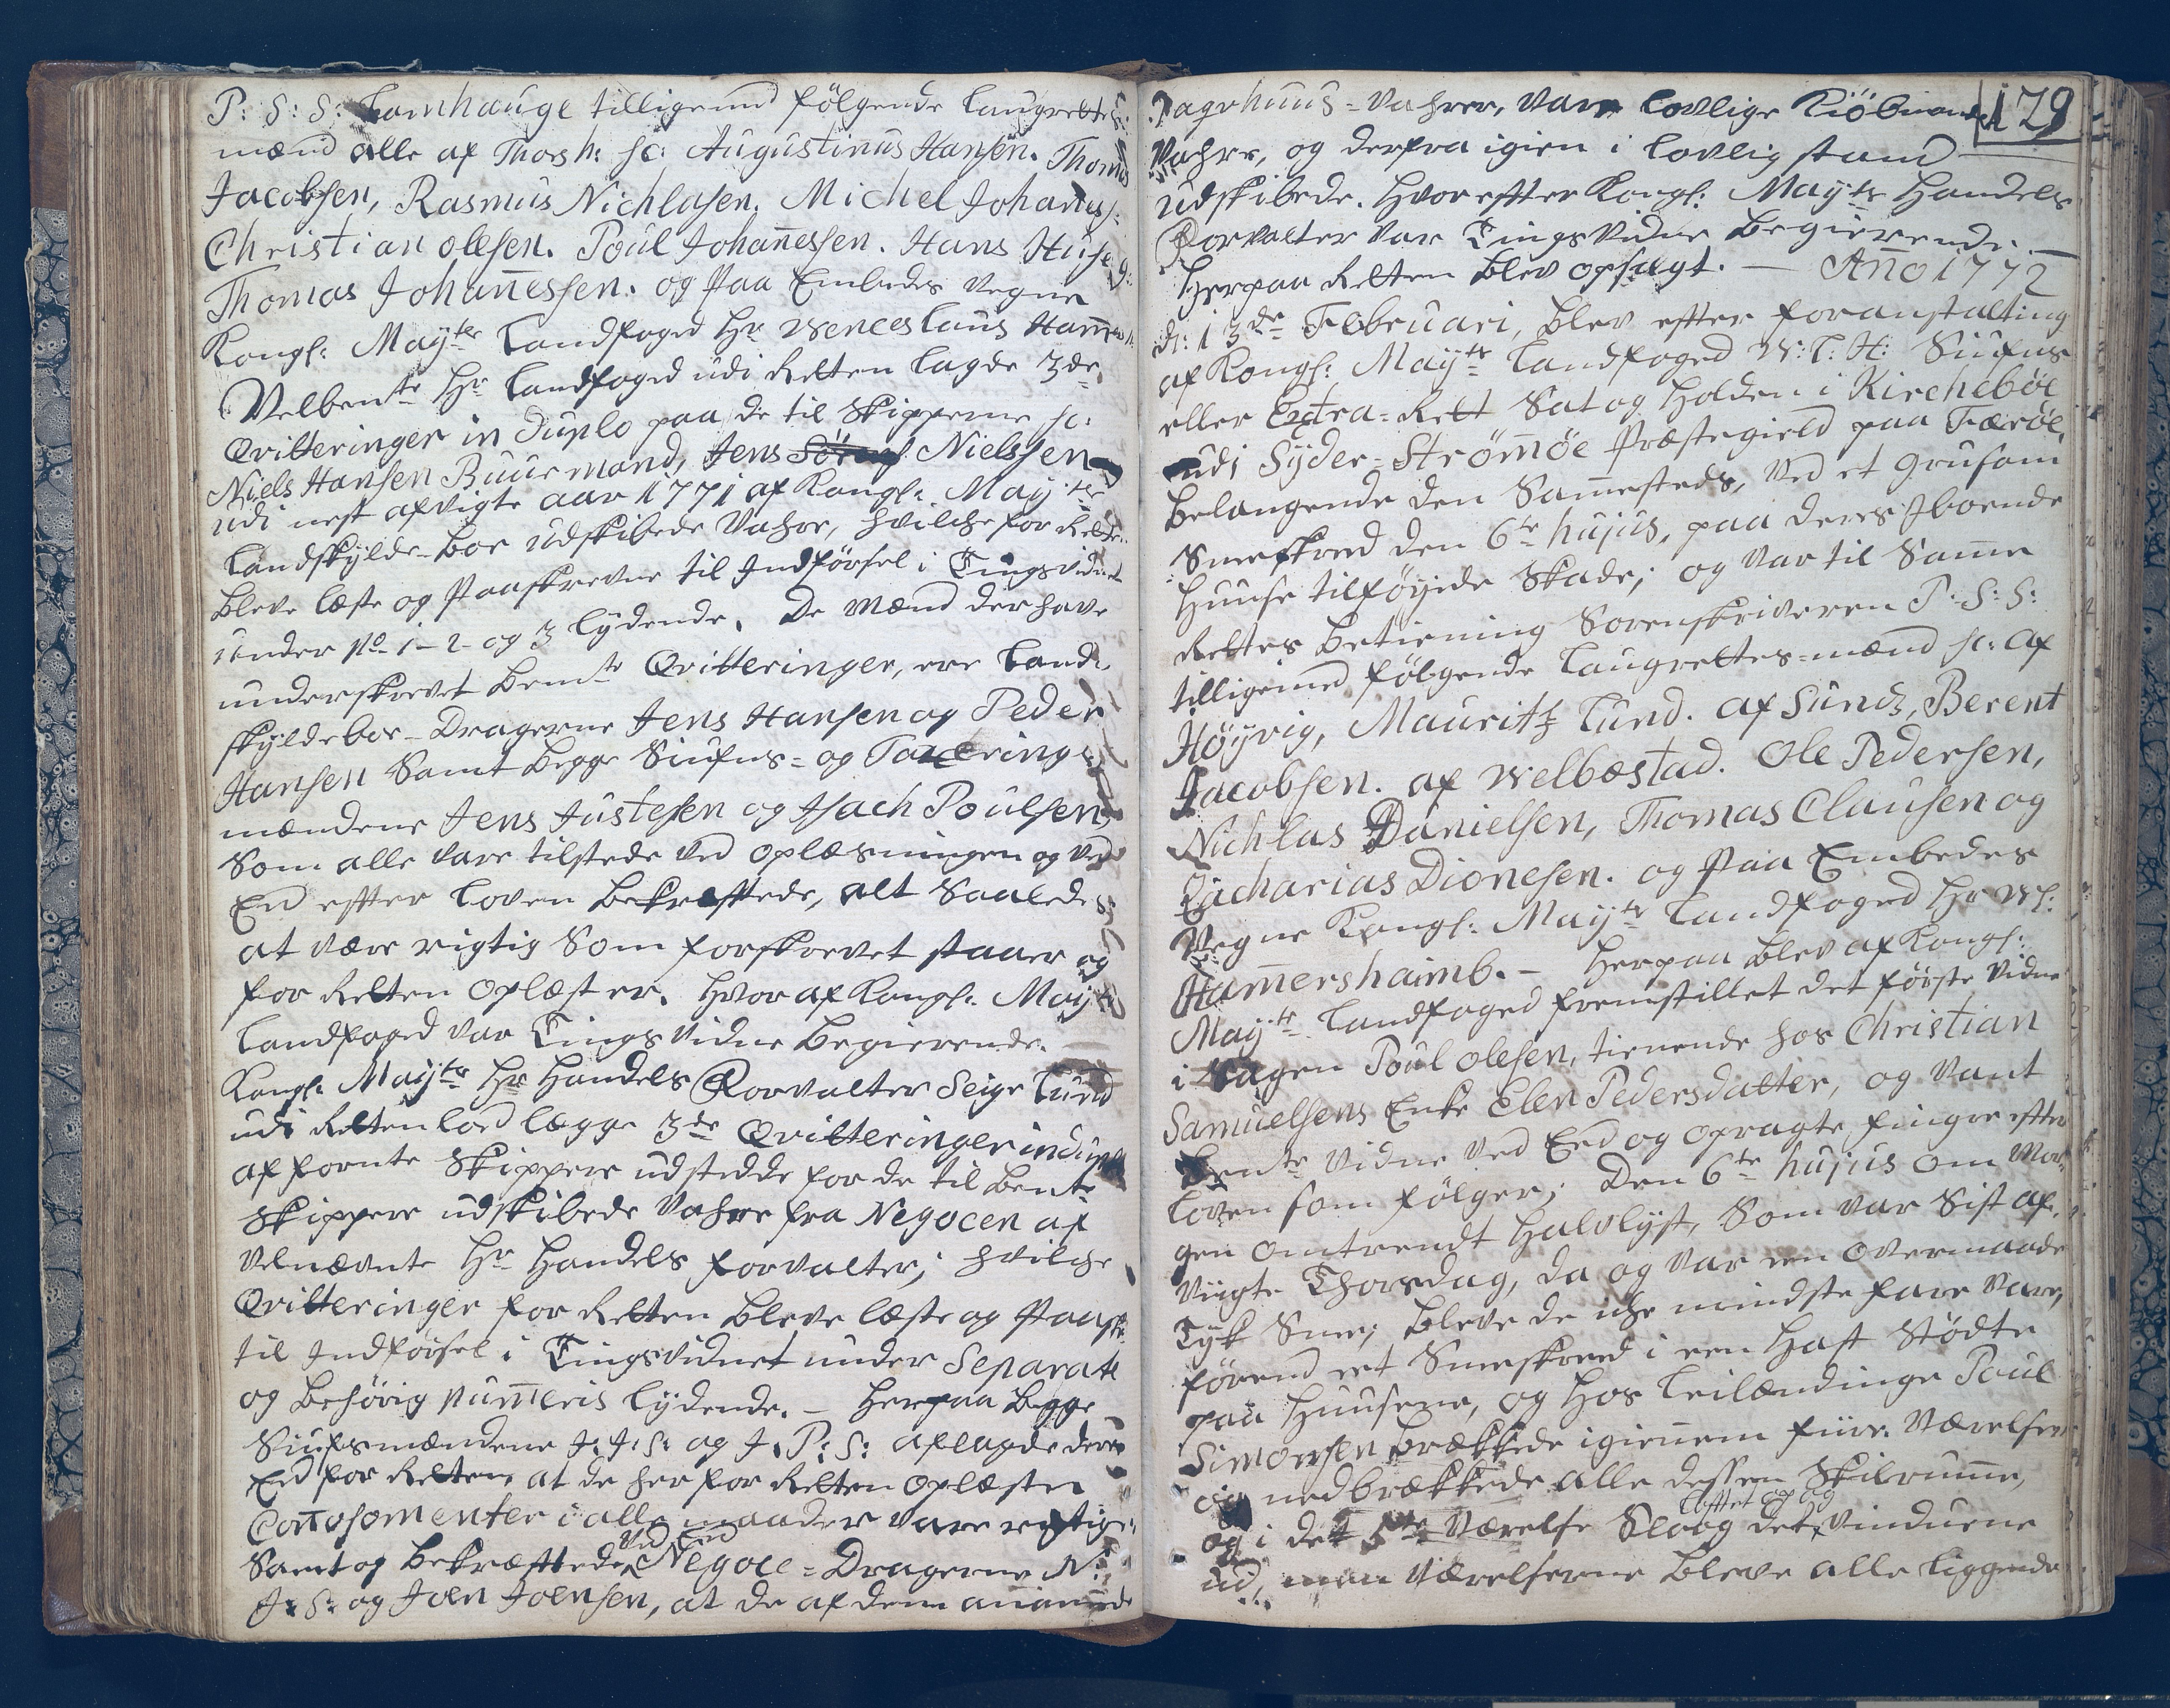 P: S: S: Lamhauge tilligemed fölgende Laugrettes
mænd alle af Thorsh: sc: Augustinus Hansen. Thomas
Jacobsen, Rasmus Nichlasen. Michel Johaness:
Christian olesen. Poul Johan̄essen. Hans
Thomas Johan̄essen. og Paa Embedes Vegne
Kongl: Mayts Landfoged Hr Wenceslaus Ham̄ersh:
Velbemte Hr Landfoged udi Retten lagde 3de
Qvitteringer in Duplo paa de til Skipperne sc:
Niels Hansen Buurmand, Jens Nielssen
udi nest afvigte aar 1771 af Kongl: Mayts
Landskylds-Boe udskibede Vahre, hvilche for Retten
bleve læste og Paaskrevne til Indförsel i Tingsvidnet
under No 1-2- og 3 lydende. De Mænd der have
underskrevet bemte Qvitteringer, ere Land-
skyldeboe-Dragerne Jens Hansen og Peder
Hansen Samt begge Siufns- og Taxerings-
mændene Jens Justesen og Isach Poulsen
Som alle vare tilstede ved oplæsningen og ved
Eed efter Loven bekræftede, alt Saaledes
at være rigtig Som forskrevet staaer og
for Retten oplæst er. Hvoraf Kongl: Mayts
Landfoged var Tings Vidne begierende.
Kongl: Mayts Hr Handels Forvalter Seigr Lund
udi Retten lod lægge 3de Qvitteringer in duplo
af fornte Skippere udstedde for de til bemte
Skippere udskibede Vahre fra Negocen af
velnævnte Hr Handels forvalter; hvilche
Qvitteringer for Retten bleve læste og Paaskr:
til Indförsel i Tingsvidnet under Separate
og behörig Num̄eris lydende. — Herpaa begge
Siufnsmændene J: J: S: og J: P: S: aflagde deres
Eed for Retten, at de her for Retten oplæste
i alle maader vare rigtige,
Samt og bekræftede ved Eed Negoce-Dragerne N:
J: S: og Joen Joensen, at de af dem anam̄ede
179
Pagehuus-Vahrer, vare lovlige Kiöbmands
Vahre, og derfra igien i lovlig stand
udskibede. Hvorefter Kongl: Mayts Handels
Forvalter var Tings Vidne begierende. —
Herpaa Retten blev opsagt. — An̄o 1772
d: 13de Februari, blev efter foranstalting
af Kongl: Mayts Landfoged W: l: H: Siufns
eller Extra-Rett Sat og Holden i Kirchebøe
udi Syder-Strömöe Præstegield paa Færöe,
belangende den Sam̄esteds, ved et grusom
Sneeskred den 6te hujus, paa deres Iboende
Huuse tilföyede Skade; og var til Sam̄e
Rettes betiening Sorenskriveren P: S: S:
tilligemed fölgende Laugrettes-mænd sc: af
Höyvig, Mauritz Lund. af Sund, Berent
Jacobsen. af Welbæstad. Ole Pedersen,
Nichlas Danielsen, Thomas Clausen og
Zacharias Dionesen. og Paa Embedes
Vegne Kongl: Mayts Landfoged Hr Wl:
Ham̄ershaimb. — Herpaa blev af Kongl:
Mayts Landfoged fremstillet det förste Vidne
i Sagen Poul olesen, tienende hos Christian
Samuelsens Enke Elen Pedersdatter, og vant
bemte Vidne ved Eed og opragte fingre efter
Loven som fölger; Den 6te hujus om Mor-
gen omtrendt halvlyst, Som var Sist af-
vigte Thorsdag, da og var een overmaade
Tyk Snee, bleve de iche mindste fare vare,
förend eet Sneeskreed i een Hast stödte
paa Huusene, og hos Leilændinge Poul
Simonsen brækkede igien̄em fiire Værelser
og nedbrækkede alle dessen Skilrum̄e,
og i det 5te Værelse Sloog det Loftet op og vinduerne
ud, men Værelserne bleve alle liggende